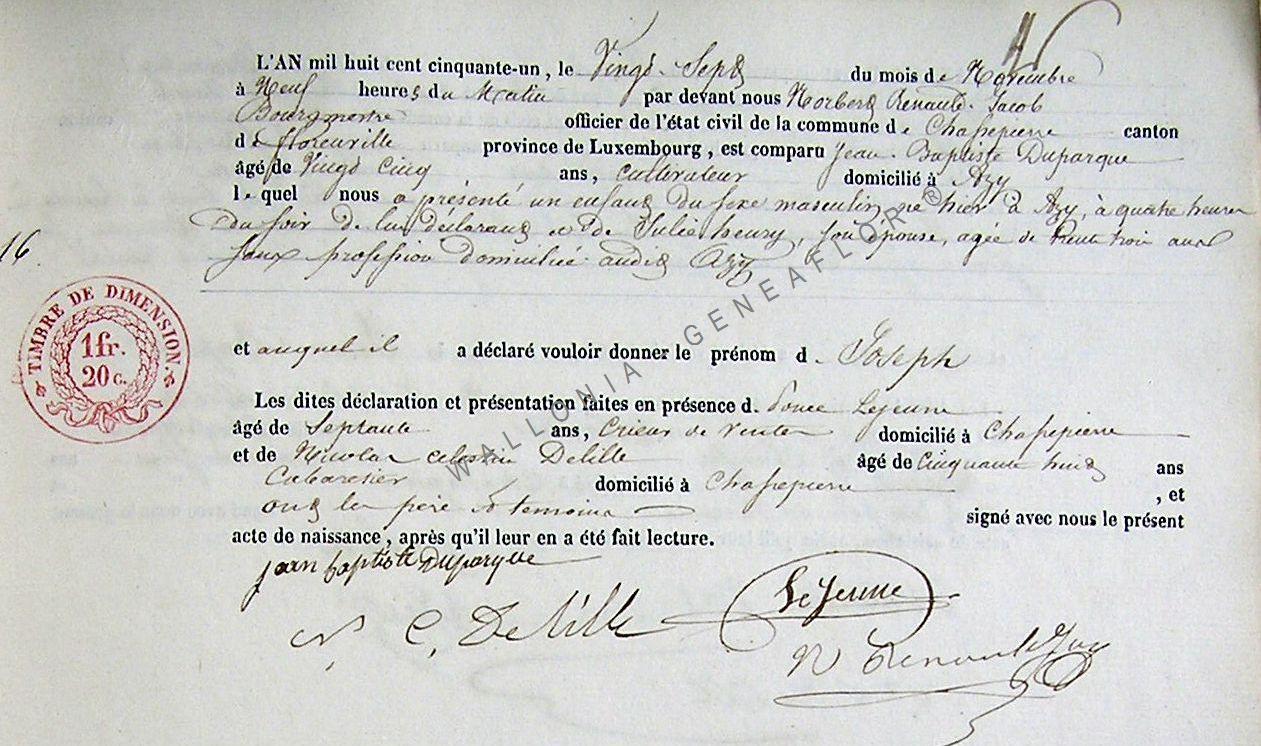 L'AN mil huit cent cinquante-un, le Vingt Sept du mois de Novembre
à Neuf heures du Matin par devant nous Norbert Renauld-Jacob
Bourgmestre officier de l'état civil de la commune de Chassepierre canton
de florenville province de Luxembourg, est comparu Jean-Baptiste Duparque
âgé de Vingt Cinq ans, Cultivateur domicilié à Azy
lequel nous a présenté un enfant du sexe masculin né hier à Azy, à quatre heures
du soir de lui déclarant et de Julie henry, son épouse, agée de trente trois ans
sans profession domiciliée audit Azy
16
TIMBRE DE DIMENSION
1fr.
20 c.
et auquel il a déclaré vouloir donner le prénom de Joseph
Les dites déclaration et présentation faites en présence de Ponce Lejeune
âgé de Septante ans, Crieur de Ventes domicilié à Chassepierre
et de Nicolas Celestin Delille âgé de Cinquante huit ans
Cabaretier domicilié à Chassepierre , et
ont les père et temoins signé avec nous le présent
acte de naissance, après qu'il leur en a été fait lecture.
jean baptiste Duparque
Le Jeune
N. C. Delille
N Renauld Jacob
WALLONIA GENEAFLOR ®